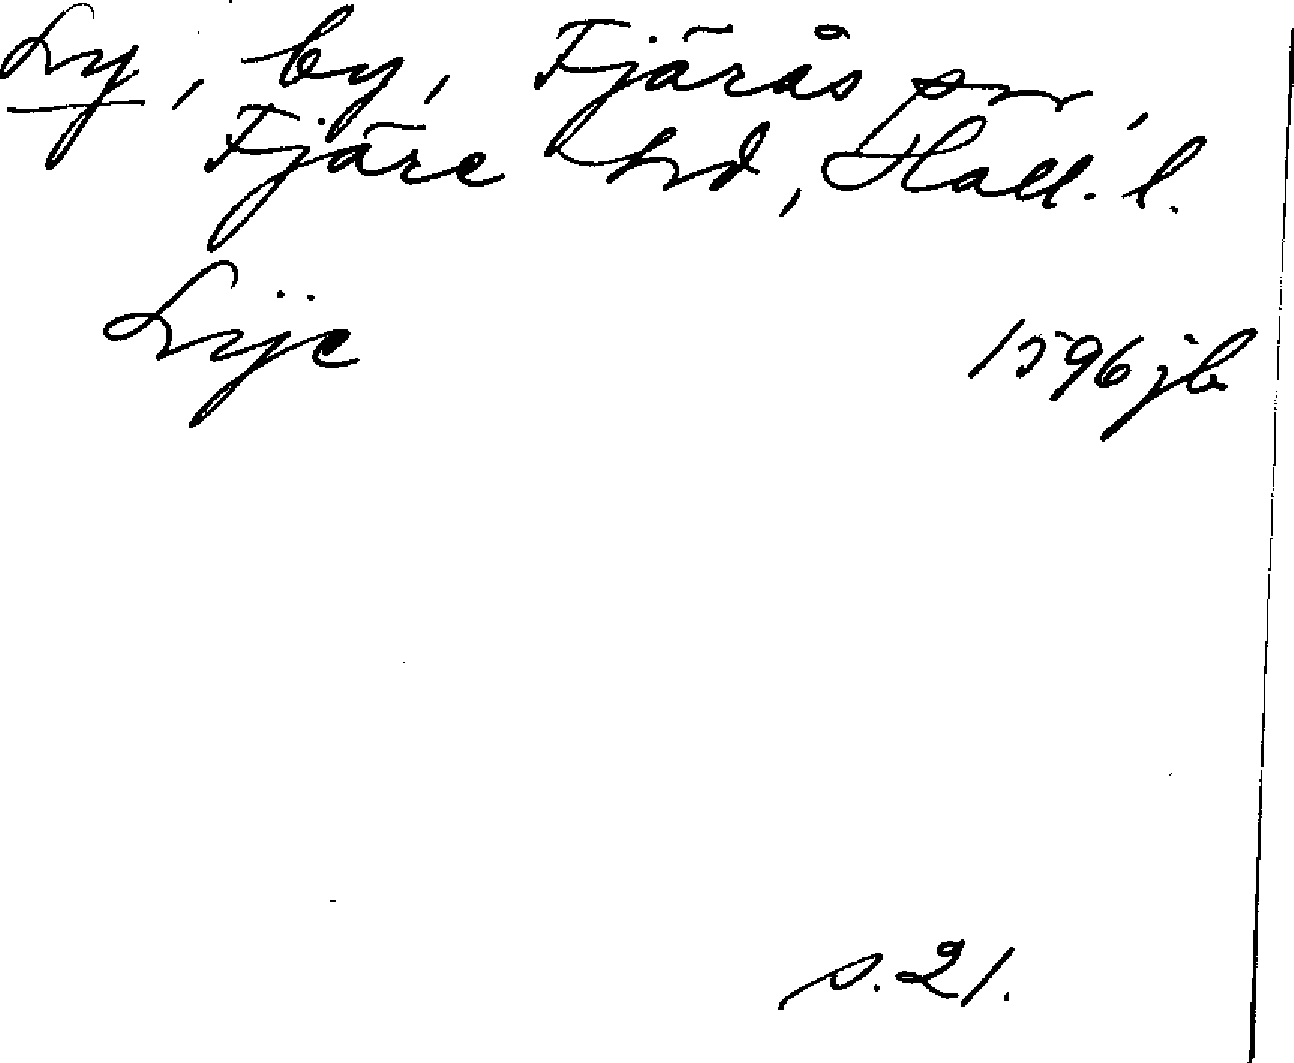 Ly, by, Fjärås sn,
Fjäre hd, Hall. l.
Lÿe 1596 jb
s. 21.